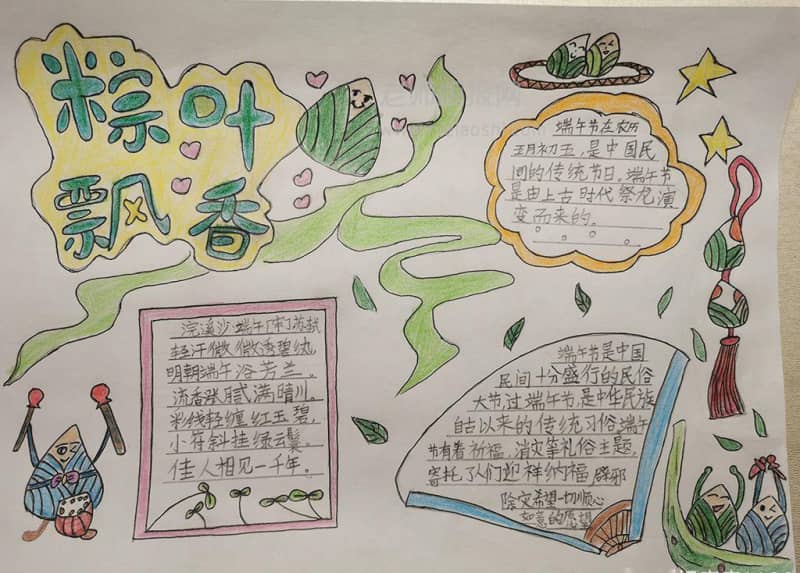 粽叶
飘香
端午节在农历
五月初五，是中国民
间的传统节日，端午节
是由上古时代祭龙演
变而来的。
浣溪沙·端午「宋」苏轼
轻汗微微透碧纨，
明朝端午浴芳兰。
流香涨腻满晴川。
彩线轻缠红玉碧，
小符斜挂绿云鬟。
佳人相见一千年。
端午节是中国
民间十分盛行的民俗
大节，过端午节，是中华民族
自古以来的传统习俗，端午
节有着祈福、消灾等礼俗主题，
寄托了人们迎祥纳福 辟邪
除灾希望一切顺心
如意的愿望